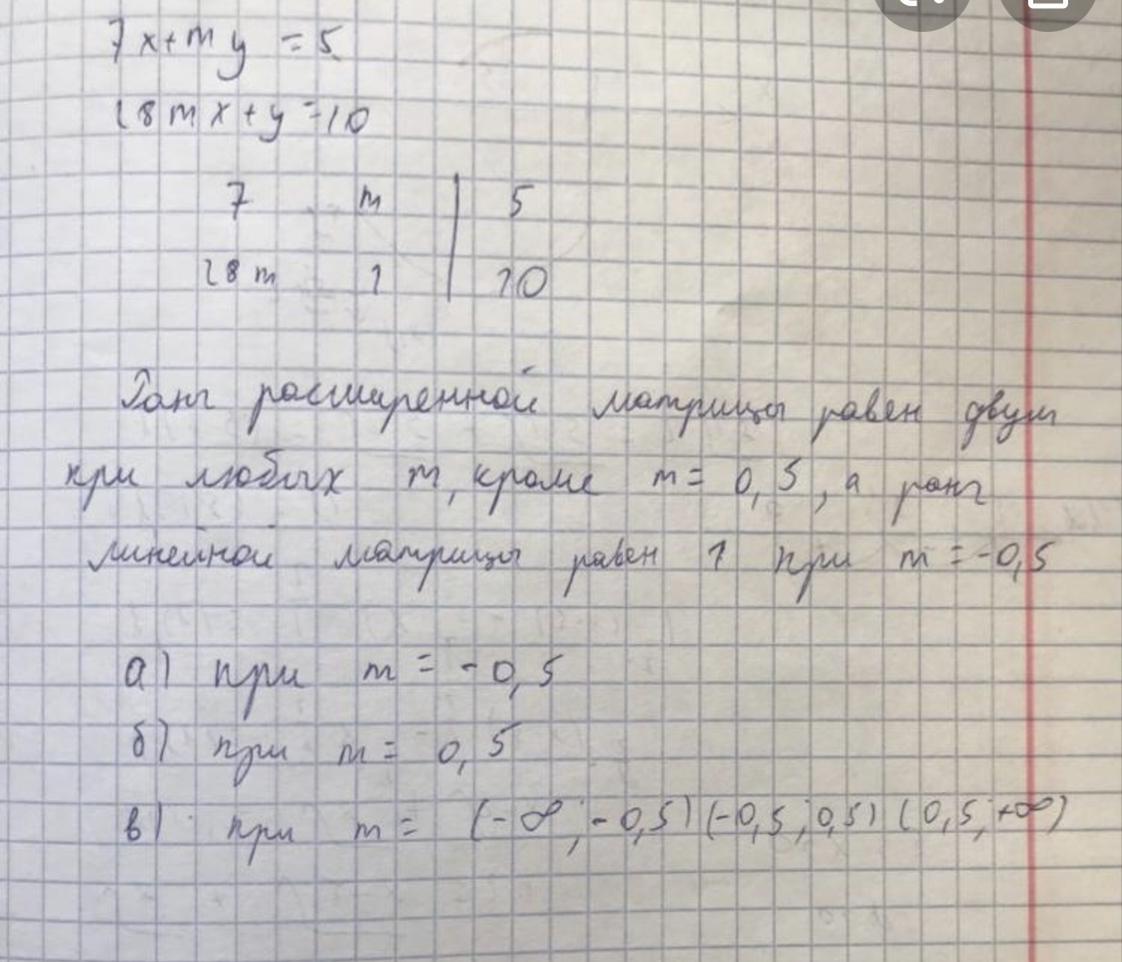 7x+my=5
28mx+y=10
7 m | 5
28m 1 | 10
Ранг расширенной матрицы равен двум
при любых m, кроме m=0,5, а ранг
линейной матрицы равен 1 при m=-0,5
а) при m=-0,5
б) при m=0,5
в) при m= (-∞;-0,5)(-0,5;0,5)(0,5;+∞)